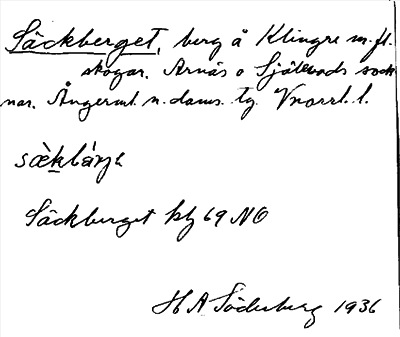 Säckberget, berg å Klingre m. fl.
skogar. Arnäs o Själevads sock
nar. Ångerml. n. doms. tg. Vnorrl. l.
sæ̀kbárjə
Säckberget kbl 69 NO
H A Söderberg 1936